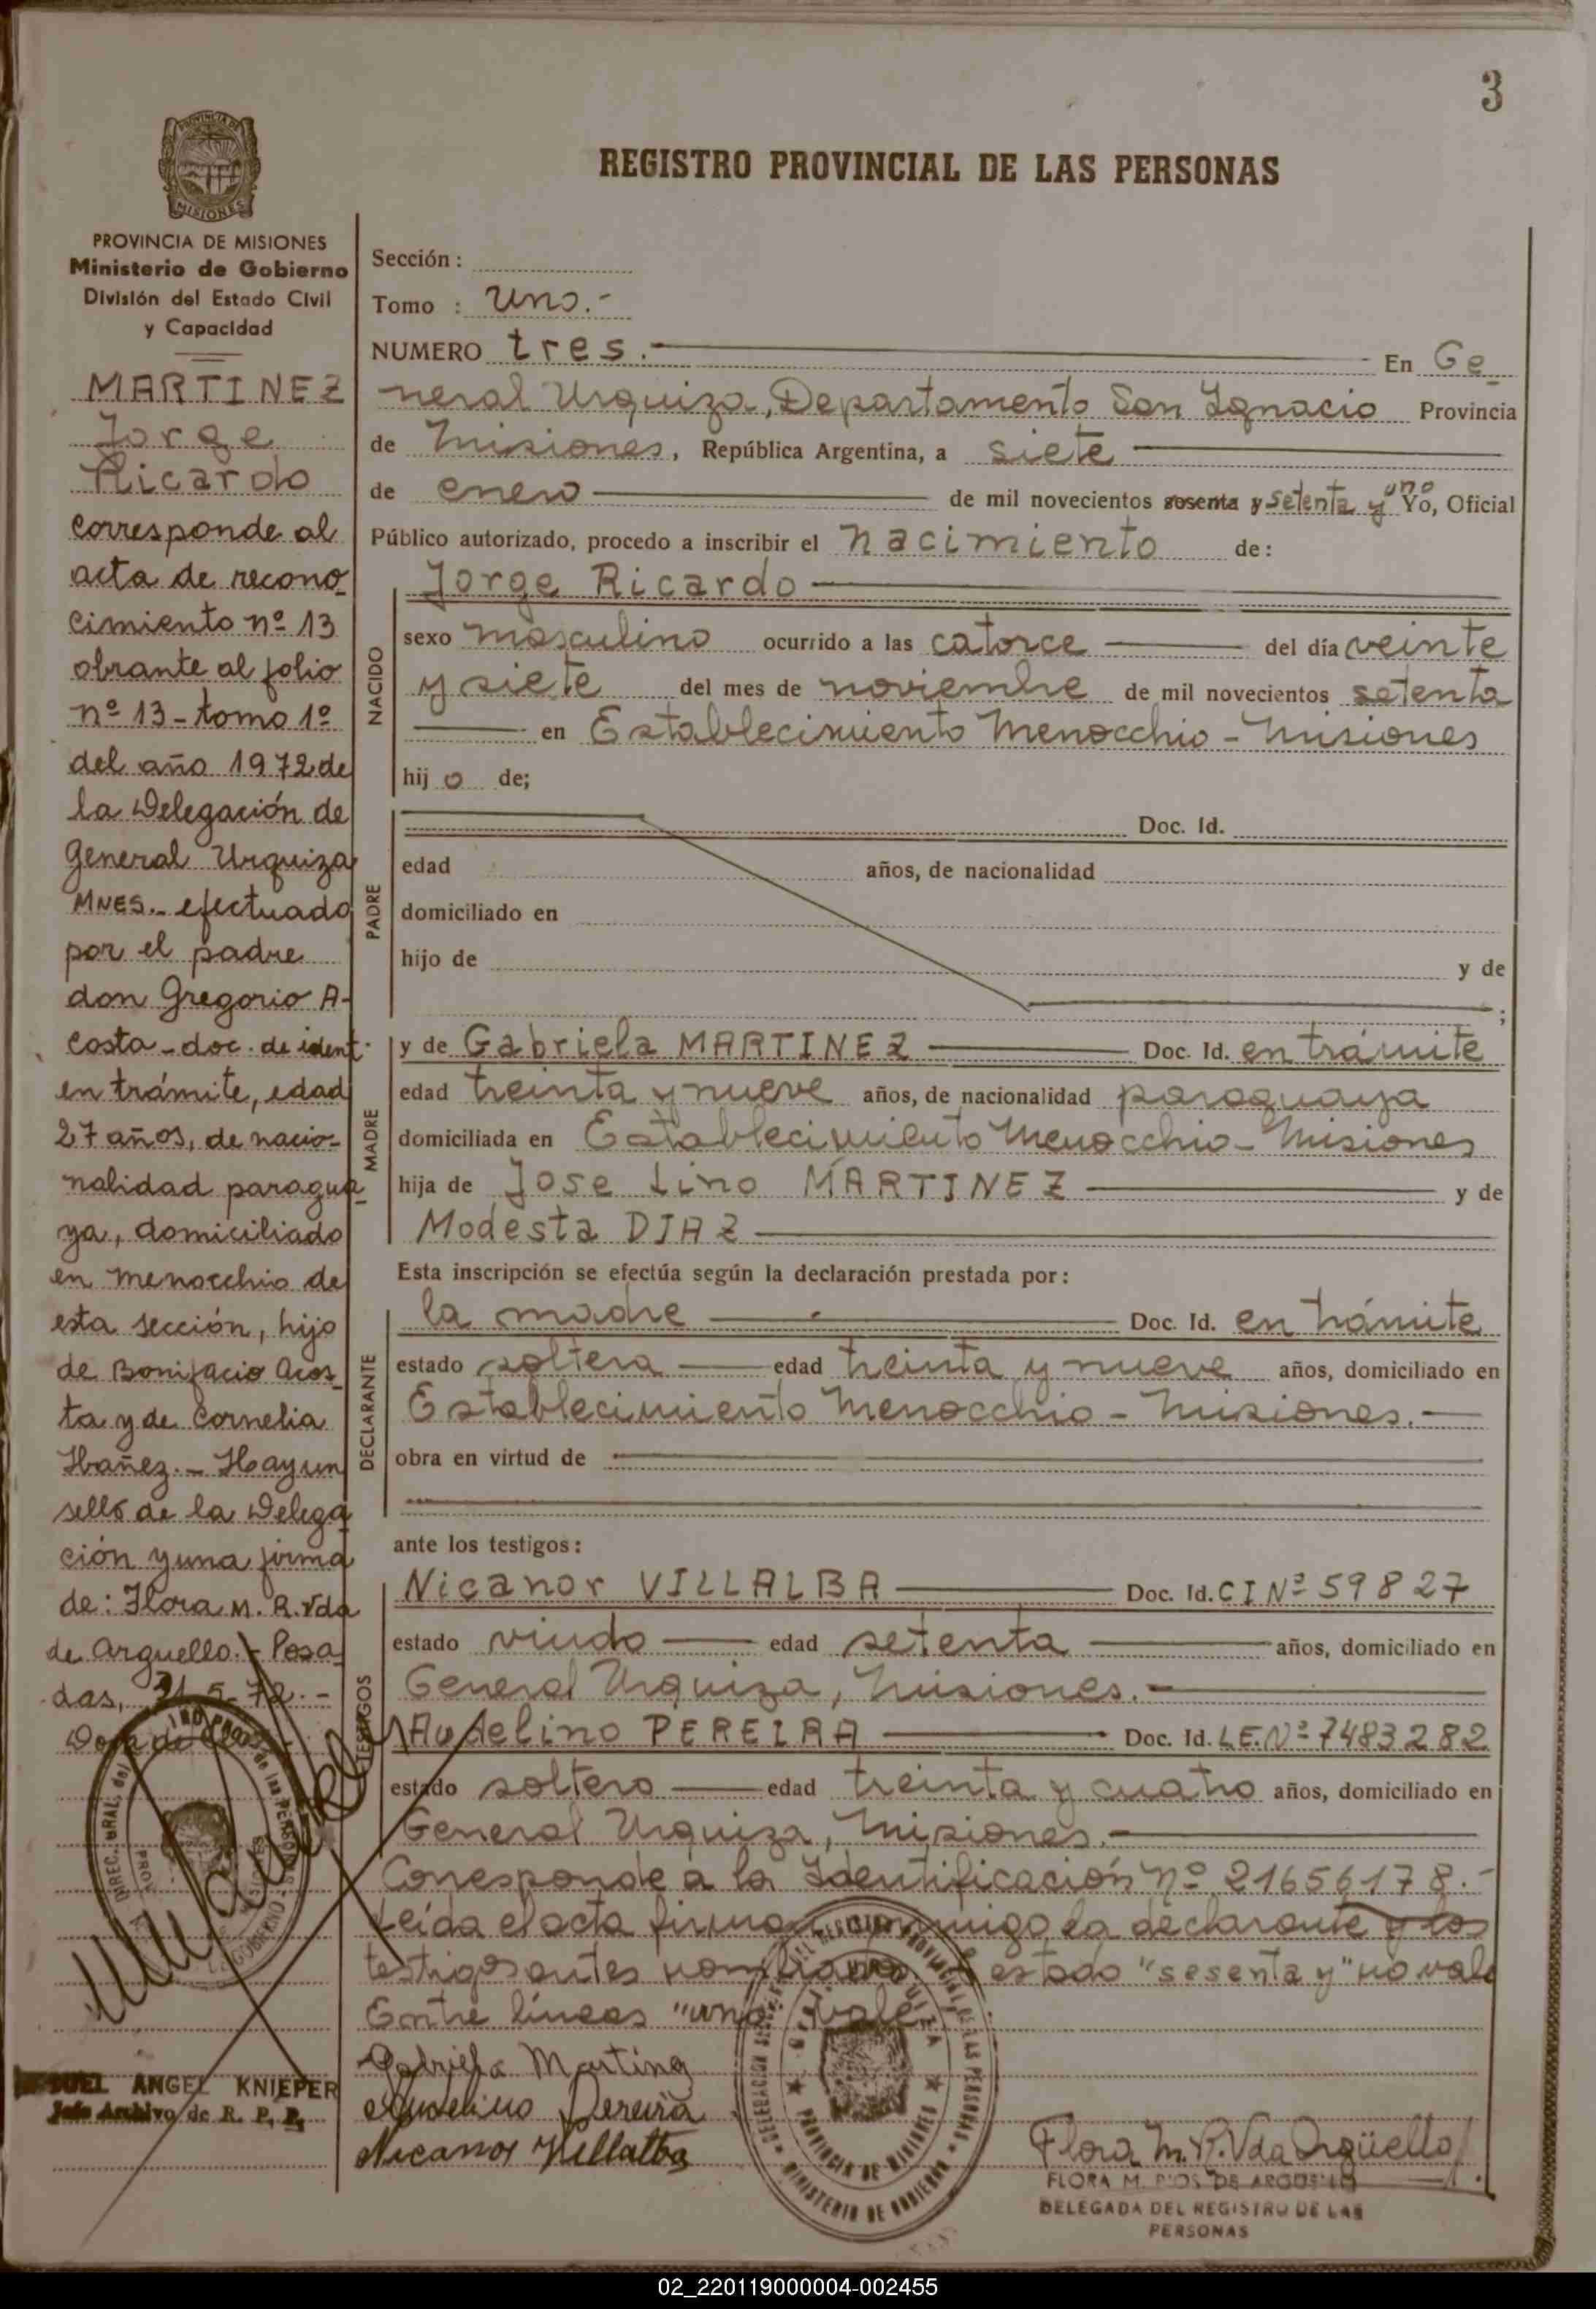 3
REGISTRO PROVINCIAL DE LAS PERSONAS
PROVINCIA DE
MISIONES
PROVINCIA DE MISIONES
Ministerio de Gobierno
División del Estado Civil
y Capacidad
MARTINEZ
Jorge
Ricardo
corresponde al
acta de recono
cimiento nº 13
obrante al folio
nº 13 - tomo 1º
del año 1972 de
la Delegación de
General Urquiza
MNES.- efectuado
por el padre
don Gregorio A-
costa - doc. de ident.
en trámite, edad
27 años, de nacio-
nalidad paragua
ya, domiciliado
en Menocchio de
esta sección, hijo
de Bonifacio Acos_
ta y de Cornelia
Ibañez.- Hay un
sello de la Delega
ción y una firma
de: Flora M. R. Vda
de Arguello.- Posa_
das, 31-5-72.-
MIGUEL ANGEL KNIEPER
Jefe Archivo de R. P. P.
Sección :
Tomo : Uno.-
NUMERO tres.- En Ge_
neral Urquiza, Departamento San Ignacio Provincia
de Misiones, República Argentina, a siete
de enero de mil novecientos sesenta y setenta y uno Yo, Oficial
Público autorizado, procedo a inscribir el nacimiento de:
NACIDO
Jorge Ricardo
sexo masculino ocurrido a las catorce del día veinte
y siete del mes de noviembre de mil novecientos setenta
en Establecimiento Menocchio - Misiones
hijo de;
PADRE
Doc. Id.
edad años, de nacionalidad
domiciliado en
hijo de y de
;
MADRE
y de Gabriela MARTINEZ Doc. Id. en trámite
edad treinta y nueve años, de nacionalidad paraguaya
domiciliada en Establecimiento Menocchio - Misiones
hija de Jose Lino MARTINEZ y de
Modesta DIAZ
Esta inscripción se efectúa según la declaración prestada por:
DECLARANTE
la madre Doc. Id. en trámite
estado soltera edad treinta y nueve años, domiciliado en
Establecimiento Menocchio - Misiones.-
obra en virtud de
ante los testigos:
TESTIGOS
Nicanor VILLALBA Doc. Id. CI Nº 59827
estado viudo edad setenta años, domiciliado en
General Urquiza, Misiones.-
Audelino PEREIRA Doc. Id. L.E. Nº 7483282
estado soltero edad treinta y cuatro años, domiciliado en
General Urquiza, Misiones.-
Corresponde a la Identificación Nº 21656178.-
Leída el acta firman conmigo la declarante y los
testigos antes nombrados estado "sesenta y" no vale
Entre líneas "uno" vale
Gabriela Martinez
Audelino Pereira
Nicanor Villalba
Flora M. R. Vda Argüello
FLORA M. RIOS DE ARGUELLO
DELEGADA DEL REGISTRO DE LAS
PERSONAS
PROVINCIA DE MISIONES
MINISTERIO DE GOBIERNO
02_220119000004-002455